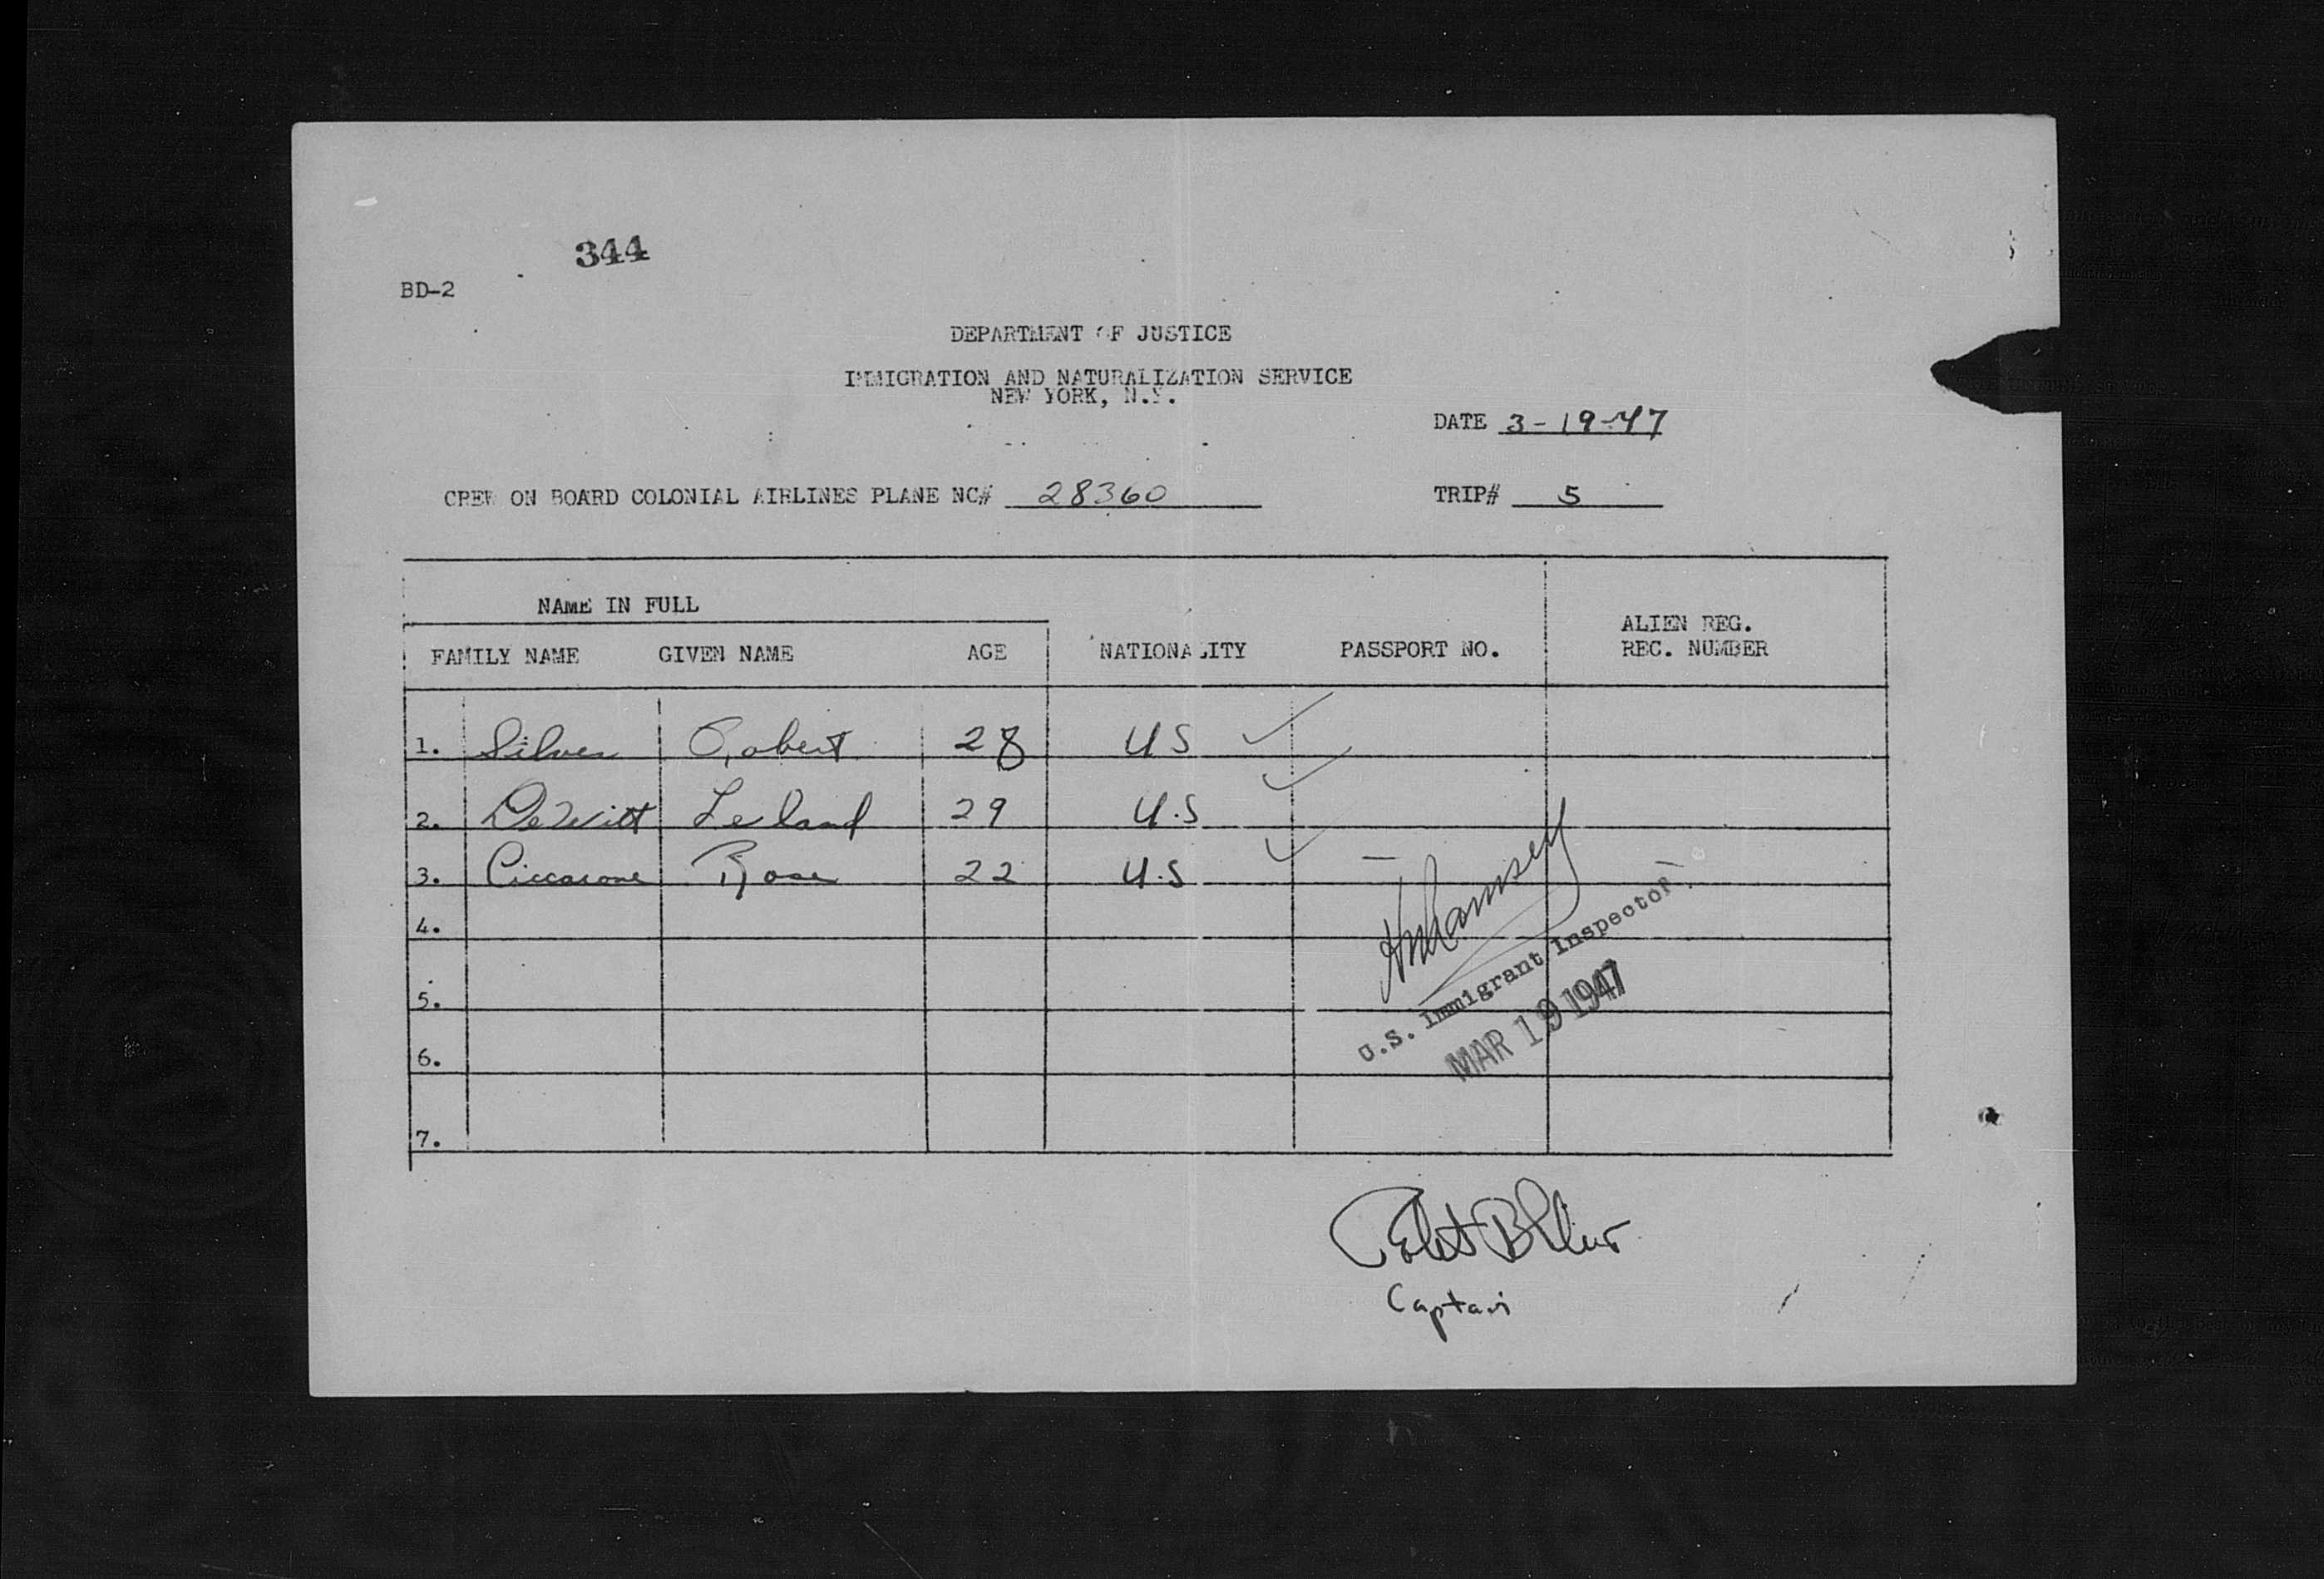 344
BD-2
DEPARTMENT OF JUSTICE
IMMIGRATION AND NATURALIZATION SERVICE
NEW YORK, N.Y.
DATE 3-19-47
CREW ON BOARD COLONIAL AIRLINES PLANE NC# 28360 TRIP# 5
NAME IN FULL
FAMILY NAME GIVEN NAME AGE NATIONALITY PASSPORT NO. ALIEN REG. REC. NUMBER
1. Silver Robert 28 US ✓
2. DeWitt Leland 29 U.S ✓
3. Ciccarone Rose 22 U.S ✓ —
4.
5.
6.
7.
Ramsey
U.S. Immigrant Inspector
MAR 19 1947
Robert B Silver
Captain